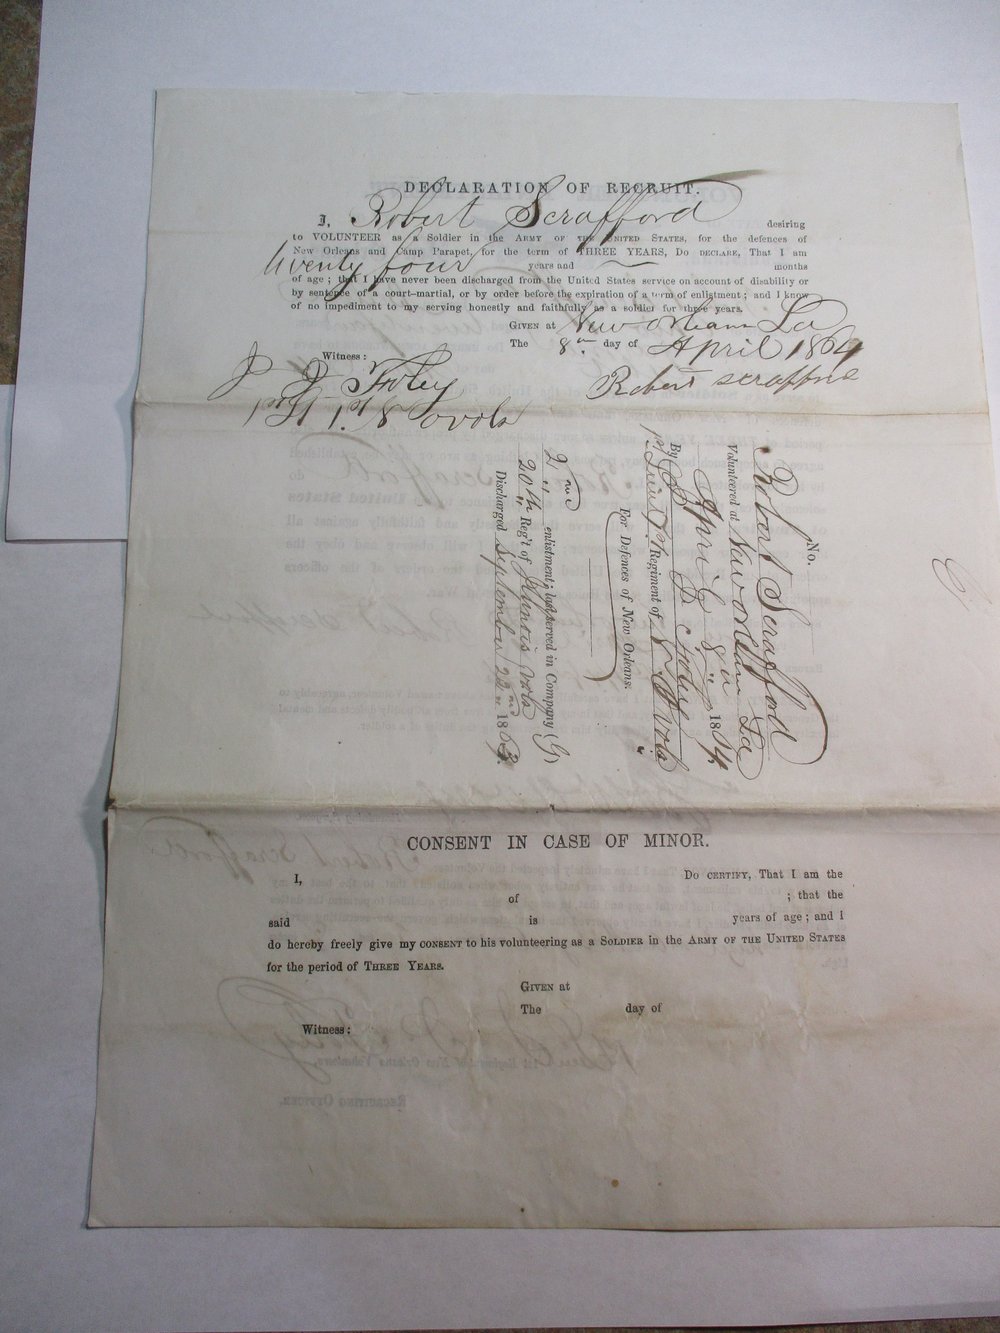 DECLARATION OF RECRUIT.
I, Robert Scrafford desiring
to VOLUNTEER as a Soldier in the ARMY OF THE UNITED STATES, for the defences of
New Orleans and Camp Parapet, for the term of THREE YEARS, DO DECLARE, That I am
twenty four years and — months
of age; that I have never been discharged from the United States service on account of disability or
by sentence of a court-martial, or by order before the expiration of a term of enlistment; and I know
of no impediment to my serving honestly and faithfully as a soldier for three years.
GIVEN at New Orleans La
The 8" day of April 1864
Witness:
J J Foley
Robert Scrafford
No.
Robert Scrafford
Volunteered at New Orleans La
April 8" 1864,
By J. J. Foley
1st Lieut 1st Regiment of N O Vols
For Defences of New Orleans.
2nd enlistment; last served in Company (G)
20th Reg't of Illinois Vols
Discharged September 22nd 1863.
CONSENT IN CASE OF MINOR.
I, DO CERTIFY, That I am the
of ; that the
said is years of age; and I
do hereby freely give my CONSENT to his volunteering as a SOLDIER in the ARMY OF THE UNITED STATES
for the period of THREE YEARS.
GIVEN at
The day of
Witness: